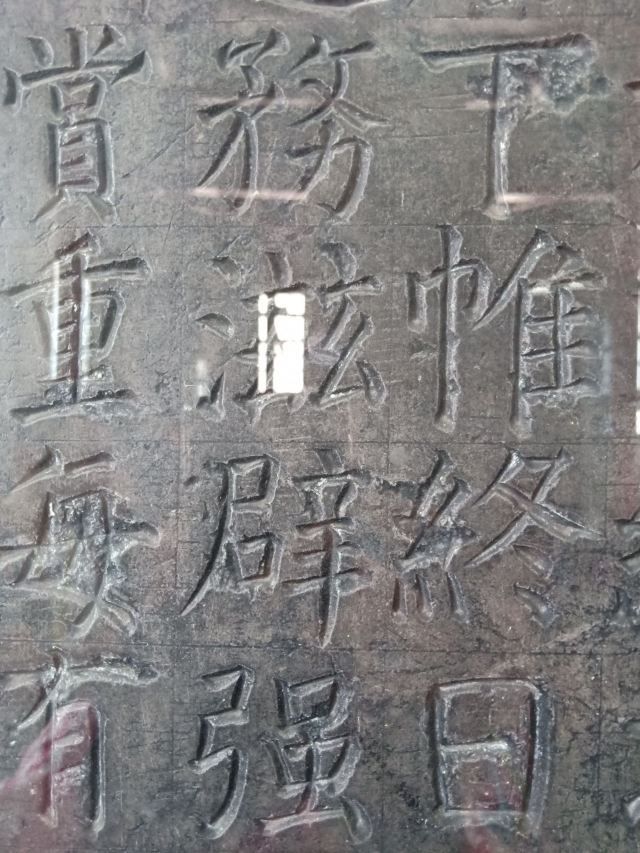 下帷終日
務滋辟强
賞重每有